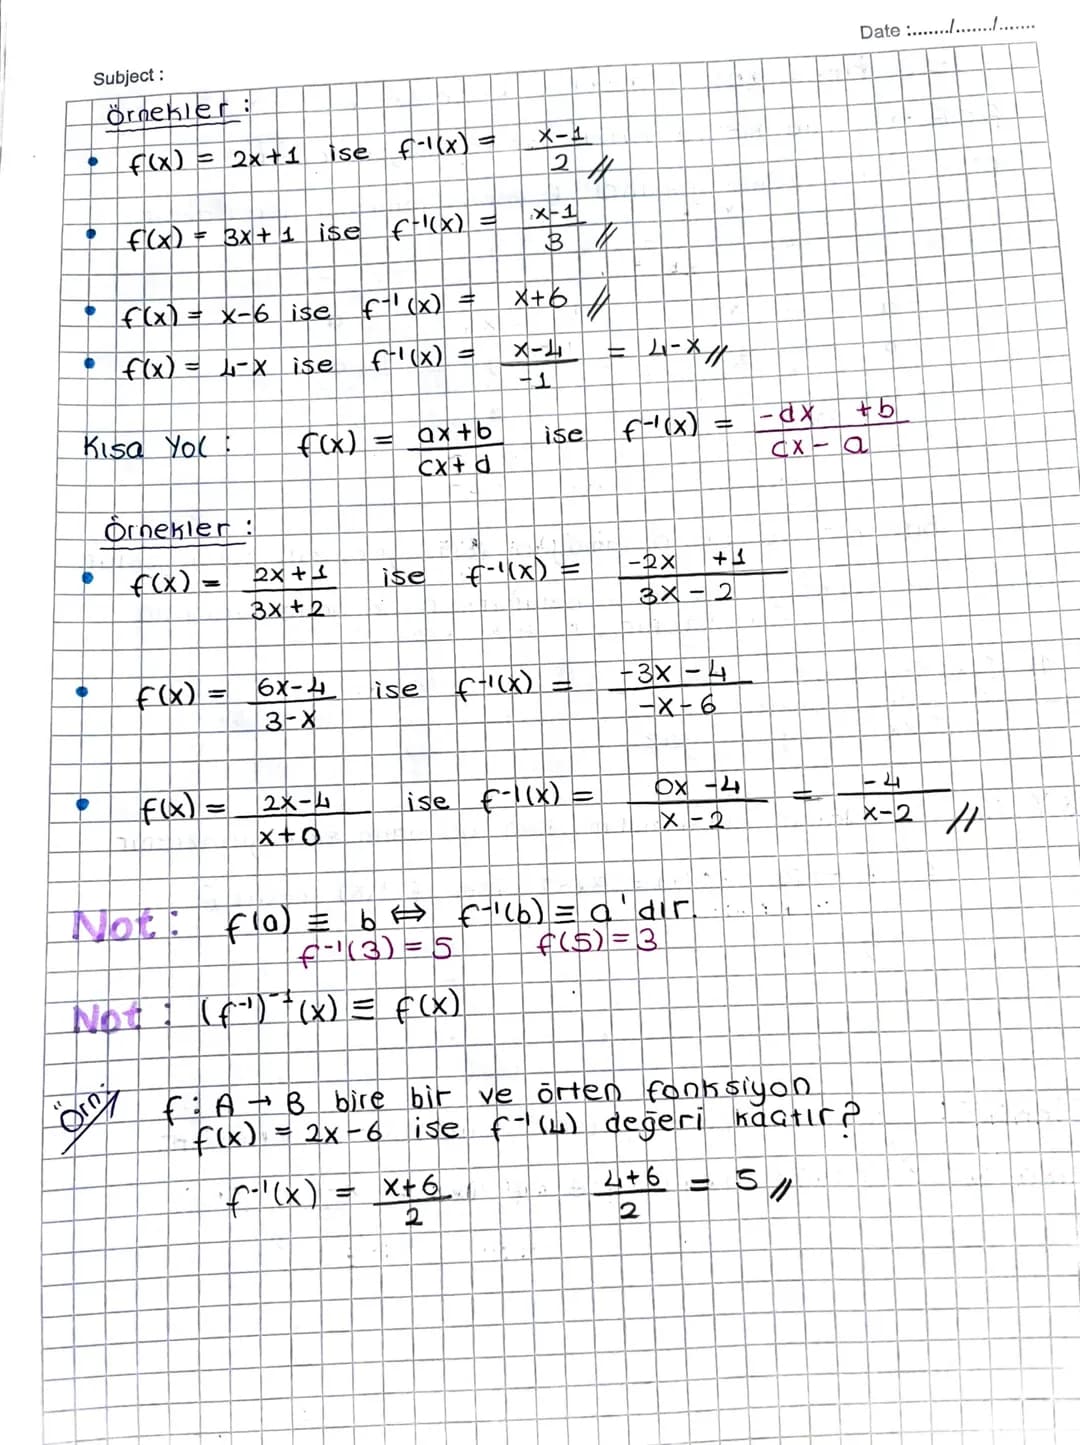 Date :......../......../........
Subject :
Örnekler :
• f(x) = 2x+1 ise f⁻¹(x) = (x-1)/2 //
• f(x) = 3x+1 ise f⁻¹(x) = (x-1)/3 //
• f(x) = x-6 ise f⁻¹(x) = x+6 //
• f(x) = 4-x ise f⁻¹(x) = (x-4)/(-1) = 4-x //
Kısa Yol : f(x) = (ax+b)/(cx+d) ise f⁻¹(x) = (-dx +b)/(cx-a)
Örnekler :
• f(x) = (2x+1)/(3x+2) ise f⁻¹(x) = (-2x +1)/(3x-2)
• f(x) = (6x-4)/(3-x) ise f⁻¹(x) = (-3x-4)/(-x-6)
• f(x) = (2x-4)/(x+0) ise f⁻¹(x) = (0x-4)/(x-2) = (-4)/(x-2) //
Not : f(a) ≡ b ⇔ f⁻¹(b) ≡ a'dır.
f⁻¹(3) = 5 f(5) = 3
Not : (f⁻¹)⁻¹(x) ≡ f(x)
Örn/ f : A → B bire bir ve örten fonksiyon
f(x) = 2x-6 ise f⁻¹(4) değeri kaçtır?
f⁻¹(x) = (x+6)/2 (4+6)/2 = 5 //